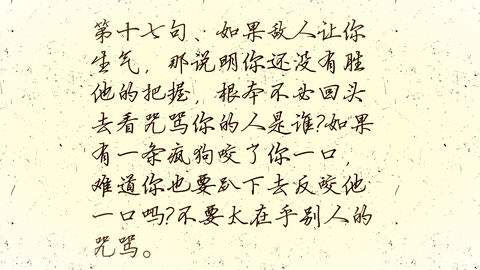 第十七句、如果敌人让你
生气，那说明你还没有胜
他的把握，根本不必回头
去看咒骂你的人是谁?如果
有一条疯狗咬了你一口，
难道你也要趴下去反咬他
一口吗?不要太在乎别人的
咒骂。